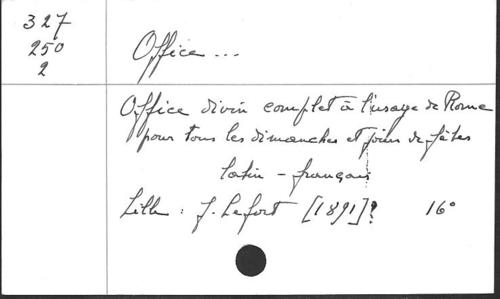 327
250
2
Office ...
Office divin complet à l'usage de Rome
pour tous les dimanches et jours de fêtes
latin - français
Lille : J. Lefort [1891]? 16°